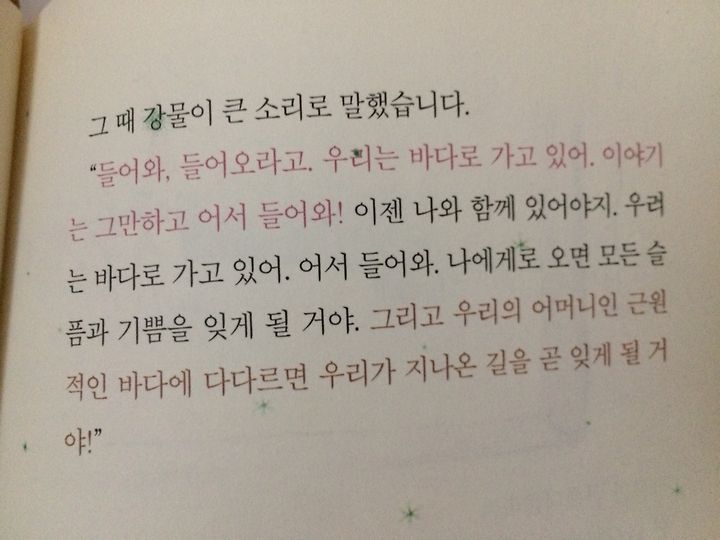 그 때 강물이 큰 소리로 말했습니다.
“들어와, 들어오라고. 우리는 바다로 가고 있어. 이야기
는 그만하고 어서 들어와! 이젠 나와 함께 있어야지. 우리
는 바다로 가고 있어. 어서 들어와. 나에게로 오면 모든 슬
픔과 기쁨을 잊게 될 거야. 그리고 우리의 어머니인 근원
적인 바다에 다다르면 우리가 지나온 길을 곧 잊게 될 거
야!”